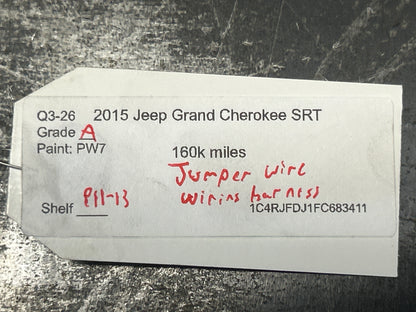 Q3-26 2015 Jeep Grand Cherokee SRT
Grade A
Paint: PW7 160k miles
Jumper wire
wiring harness
Shelf P11-13 1C4RJFDJ1FC683411